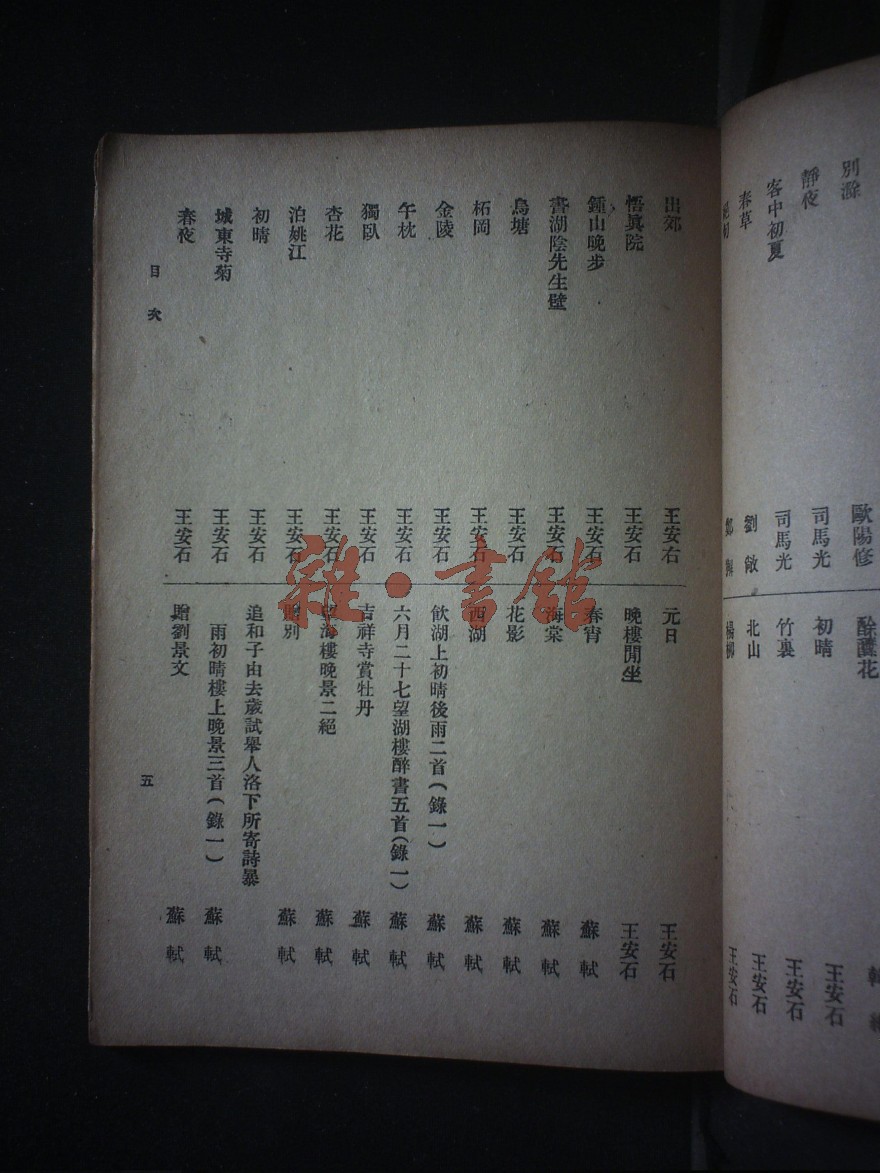 別滁 歐陽修
靜夜 司馬光
客中初夏 司馬光
春草 劉敞
酴醾花
初晴 王安石
竹裏 王安石
北山 王安石
楊柳 王安石
出郊 王安右
悟眞院 王安石
鍾山晚步 王安石
書湖陰先生壁 王安石
烏塘 王安石
柘岡 王安石
金陵 王安石
午枕 王安石
獨臥 王安石
杏花 王安石
泊姚江 王安石
初晴 王安石
城東寺菊 王安石
春夜 王安石
元日 王安石
晚樓閒坐 王安石
春宵 蘇軾
海棠 蘇軾
花影 蘇軾
西湖 蘇軾
飲湖上初晴後雨二首(錄一) 蘇軾
六月二十七望湖樓醉書五首(錄一) 蘇軾
吉祥寺賞牡丹 蘇軾
望海樓晚景二絕 蘇軾
贈別 蘇軾
追和子由去歲試舉人洛下所寄詩暴
雨初晴樓上晚景三首(錄一) 蘇軾
贈劉景文 蘇軾
目次
五
雜·書館